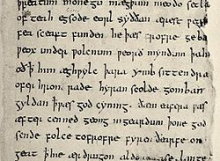 þreatum monegū mægþum meodo setla
of teah egsode eorl syððan ærest
fea sceaft funden he þæs frofre geba
ƿeox under ƿolcnum ƿeorð myndum þah
oð þ him æghƿylc þara ymb sittendra
ofer hron rade hyran scolde gomban
gyldan þ ƿæs god cyning. ðæm eafera ƿæs
æfter cenned geong in geardum þone god
sende folce tofrofre fyren ðearfe on
geat þ hie ær drugon aldor ase. lange